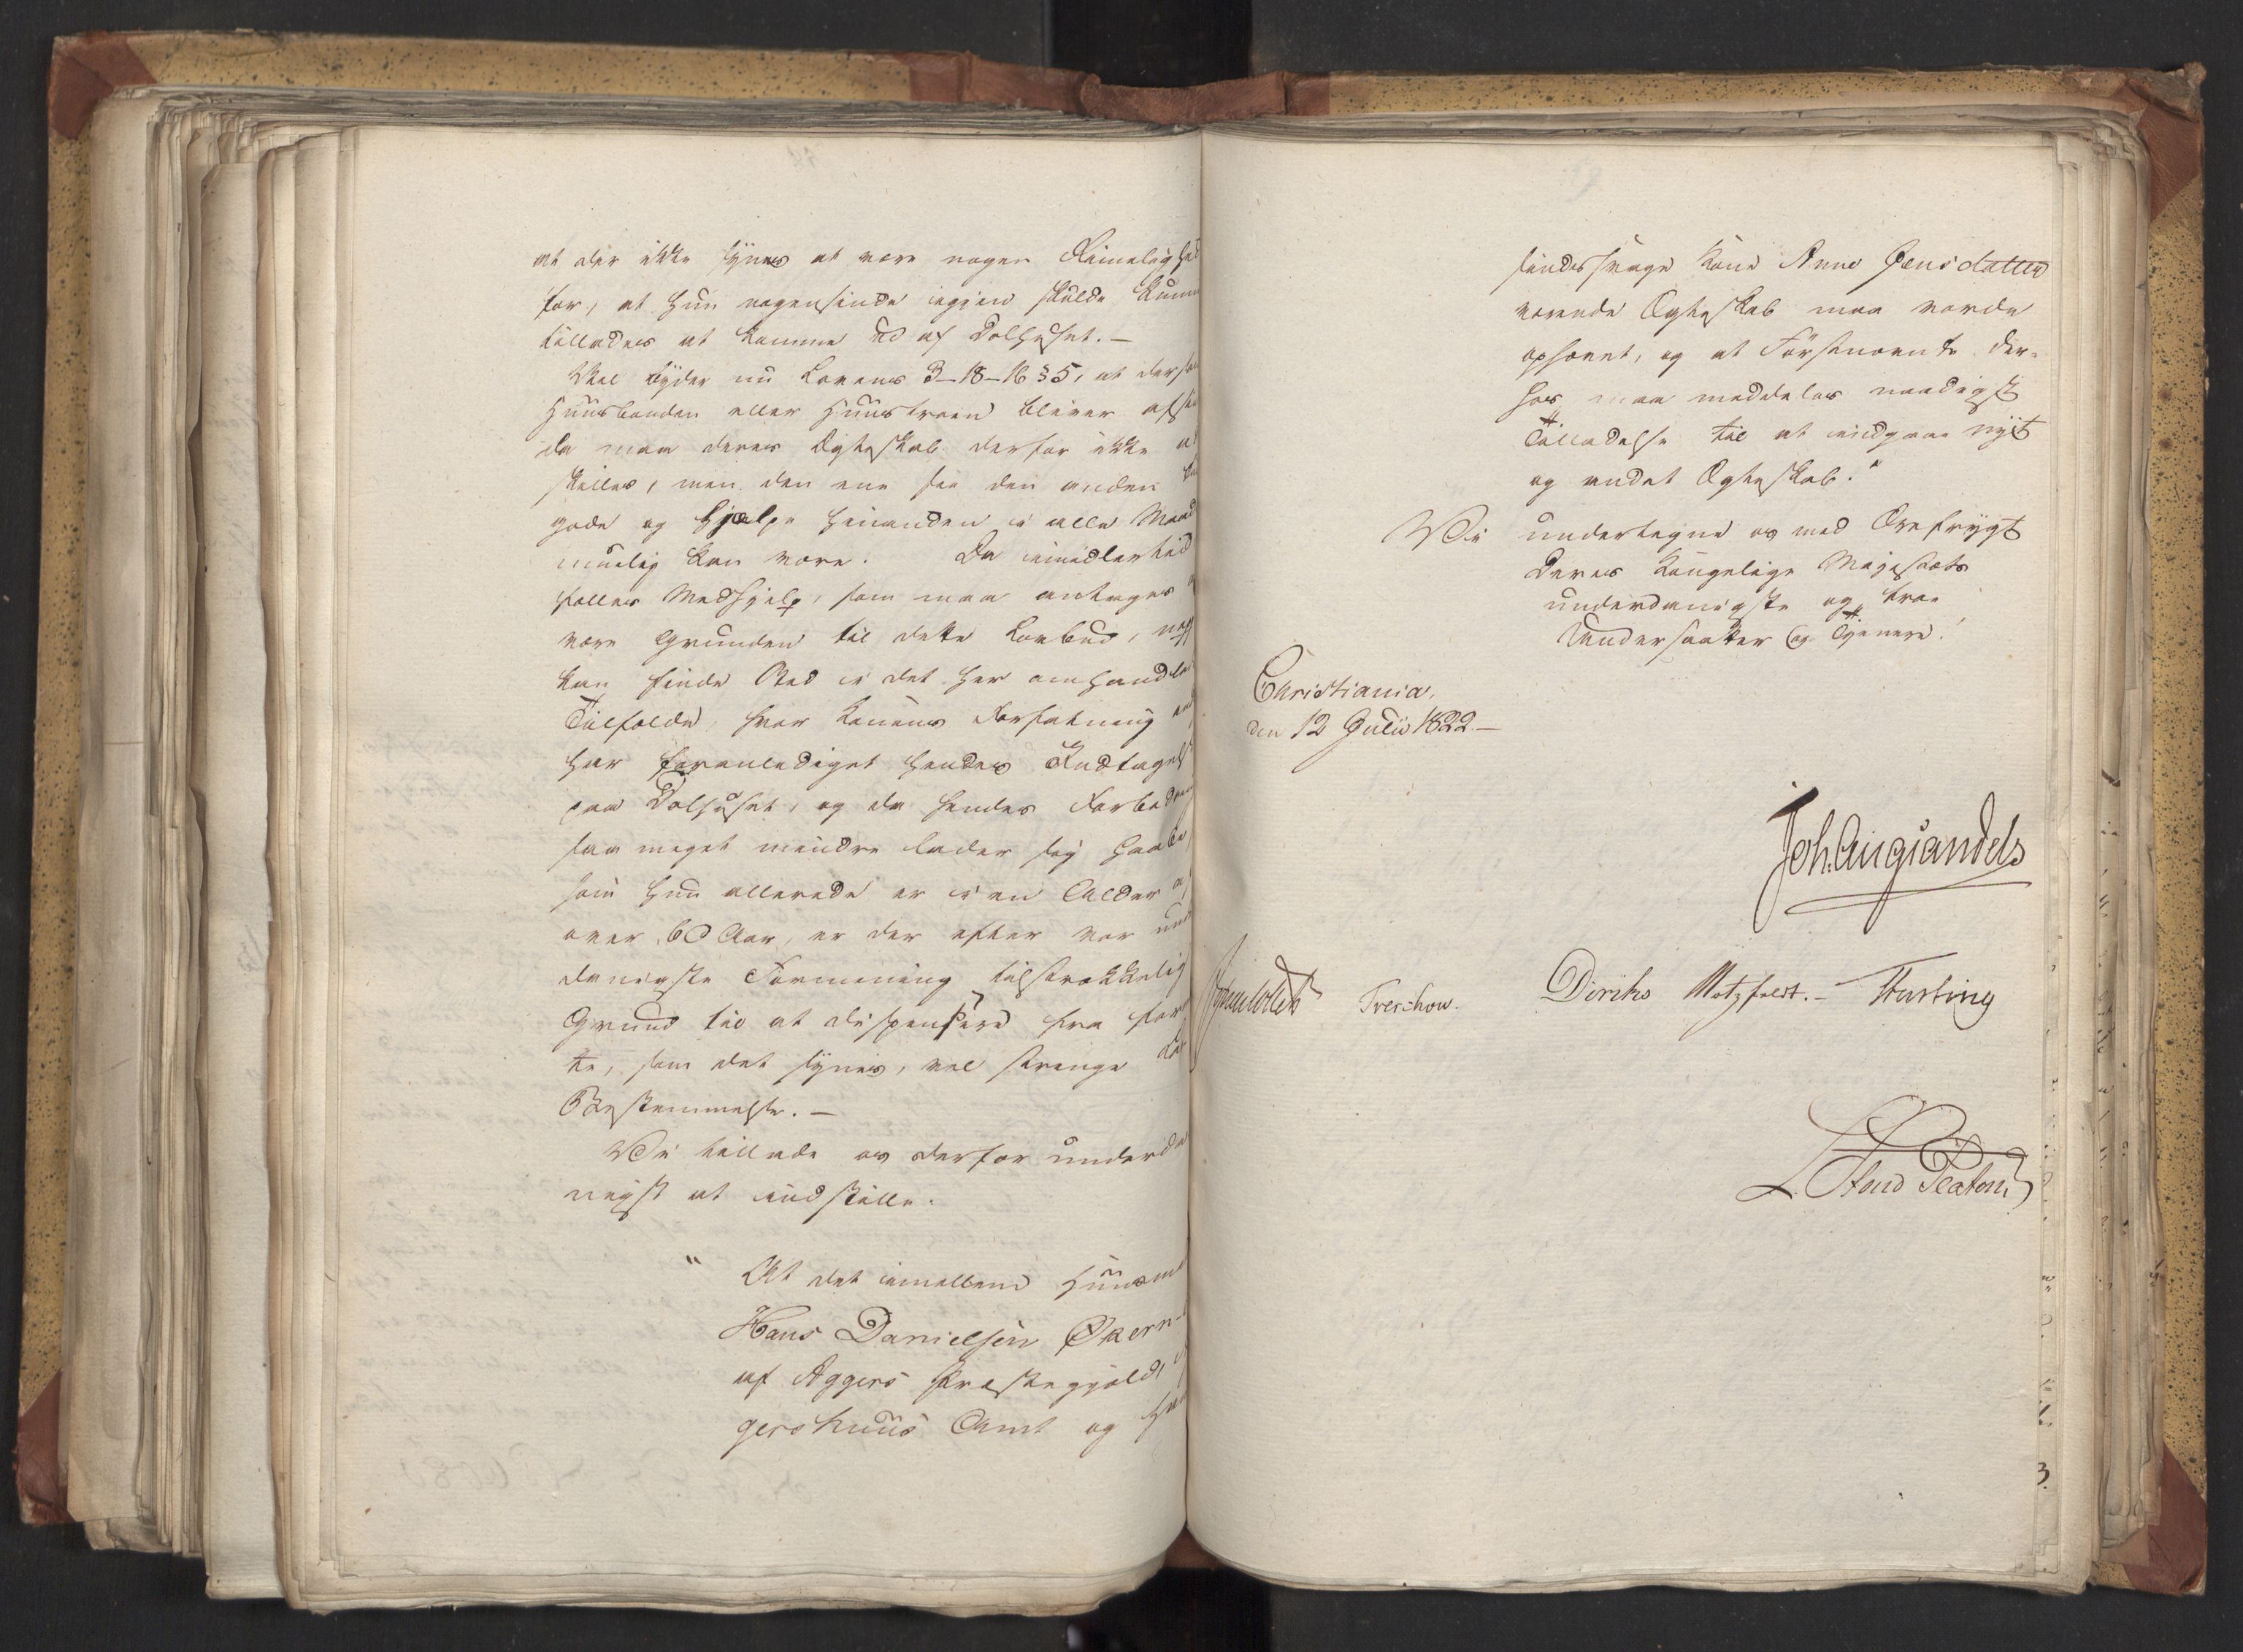 at der ikke synes at være nogen Rimelighed
for, at hun nogensinde igjen skulde kunne
tillades at komme ud af Dolhuset. —
Vel byder nu Lovens 3-18-16 § 5, at dersom
Huusbonden eller Huustroen bliver afsin
da maa deres Ægteskab derfor ikke ad
skilles, men den ene bør den anden til
gode og hjælpe hinanden i alle Maader
muelig kan være. Da imidlertid
fælles Medhjelp, som maa antages at
være Grunden til dette Lovbud, neppe
kan finde Sted i det her omhandlede
Tilfælde, hvor Konens Forfatning
har foranlediget hendes Indtagelse
paa Dolhuset, og da hendes Forbedring
saa meget mindre lader sig haabe,
som hun allerede er i en Alder af
over 60 Aar, er der efter vor under
danigste Formening tilstrækkelig
Grund til at dispensere fra for
te, som det synes, vel strenge Lov
Bestemmelse. —
Vi tillade os derfor underda
nigst at indstille:
" At det imellem Huusmand
Hans Danielsen Økern
af Aggers Præstegjeld,
gershuus Amt og
sindssvage Kone Anne Jensdatter
værende Ægteskab maa vorde
ophævet, og at Førstnævnte der-
hos maa meddeles naadigst
Tilladelse til at indgaae nyt
og andet Ægteskab."
Vi undertegne os med Ærefrygt
Deres Kongelige Majestæts
underdanigste og troe
Undersaatter og Tjenere!
Christiania,
den 12 Julii 1822 —
Joh. Aug. Sandels
Sommerhielm Treschow. Diriks Motzfeldt. — Fasting
L. Stoud Platou